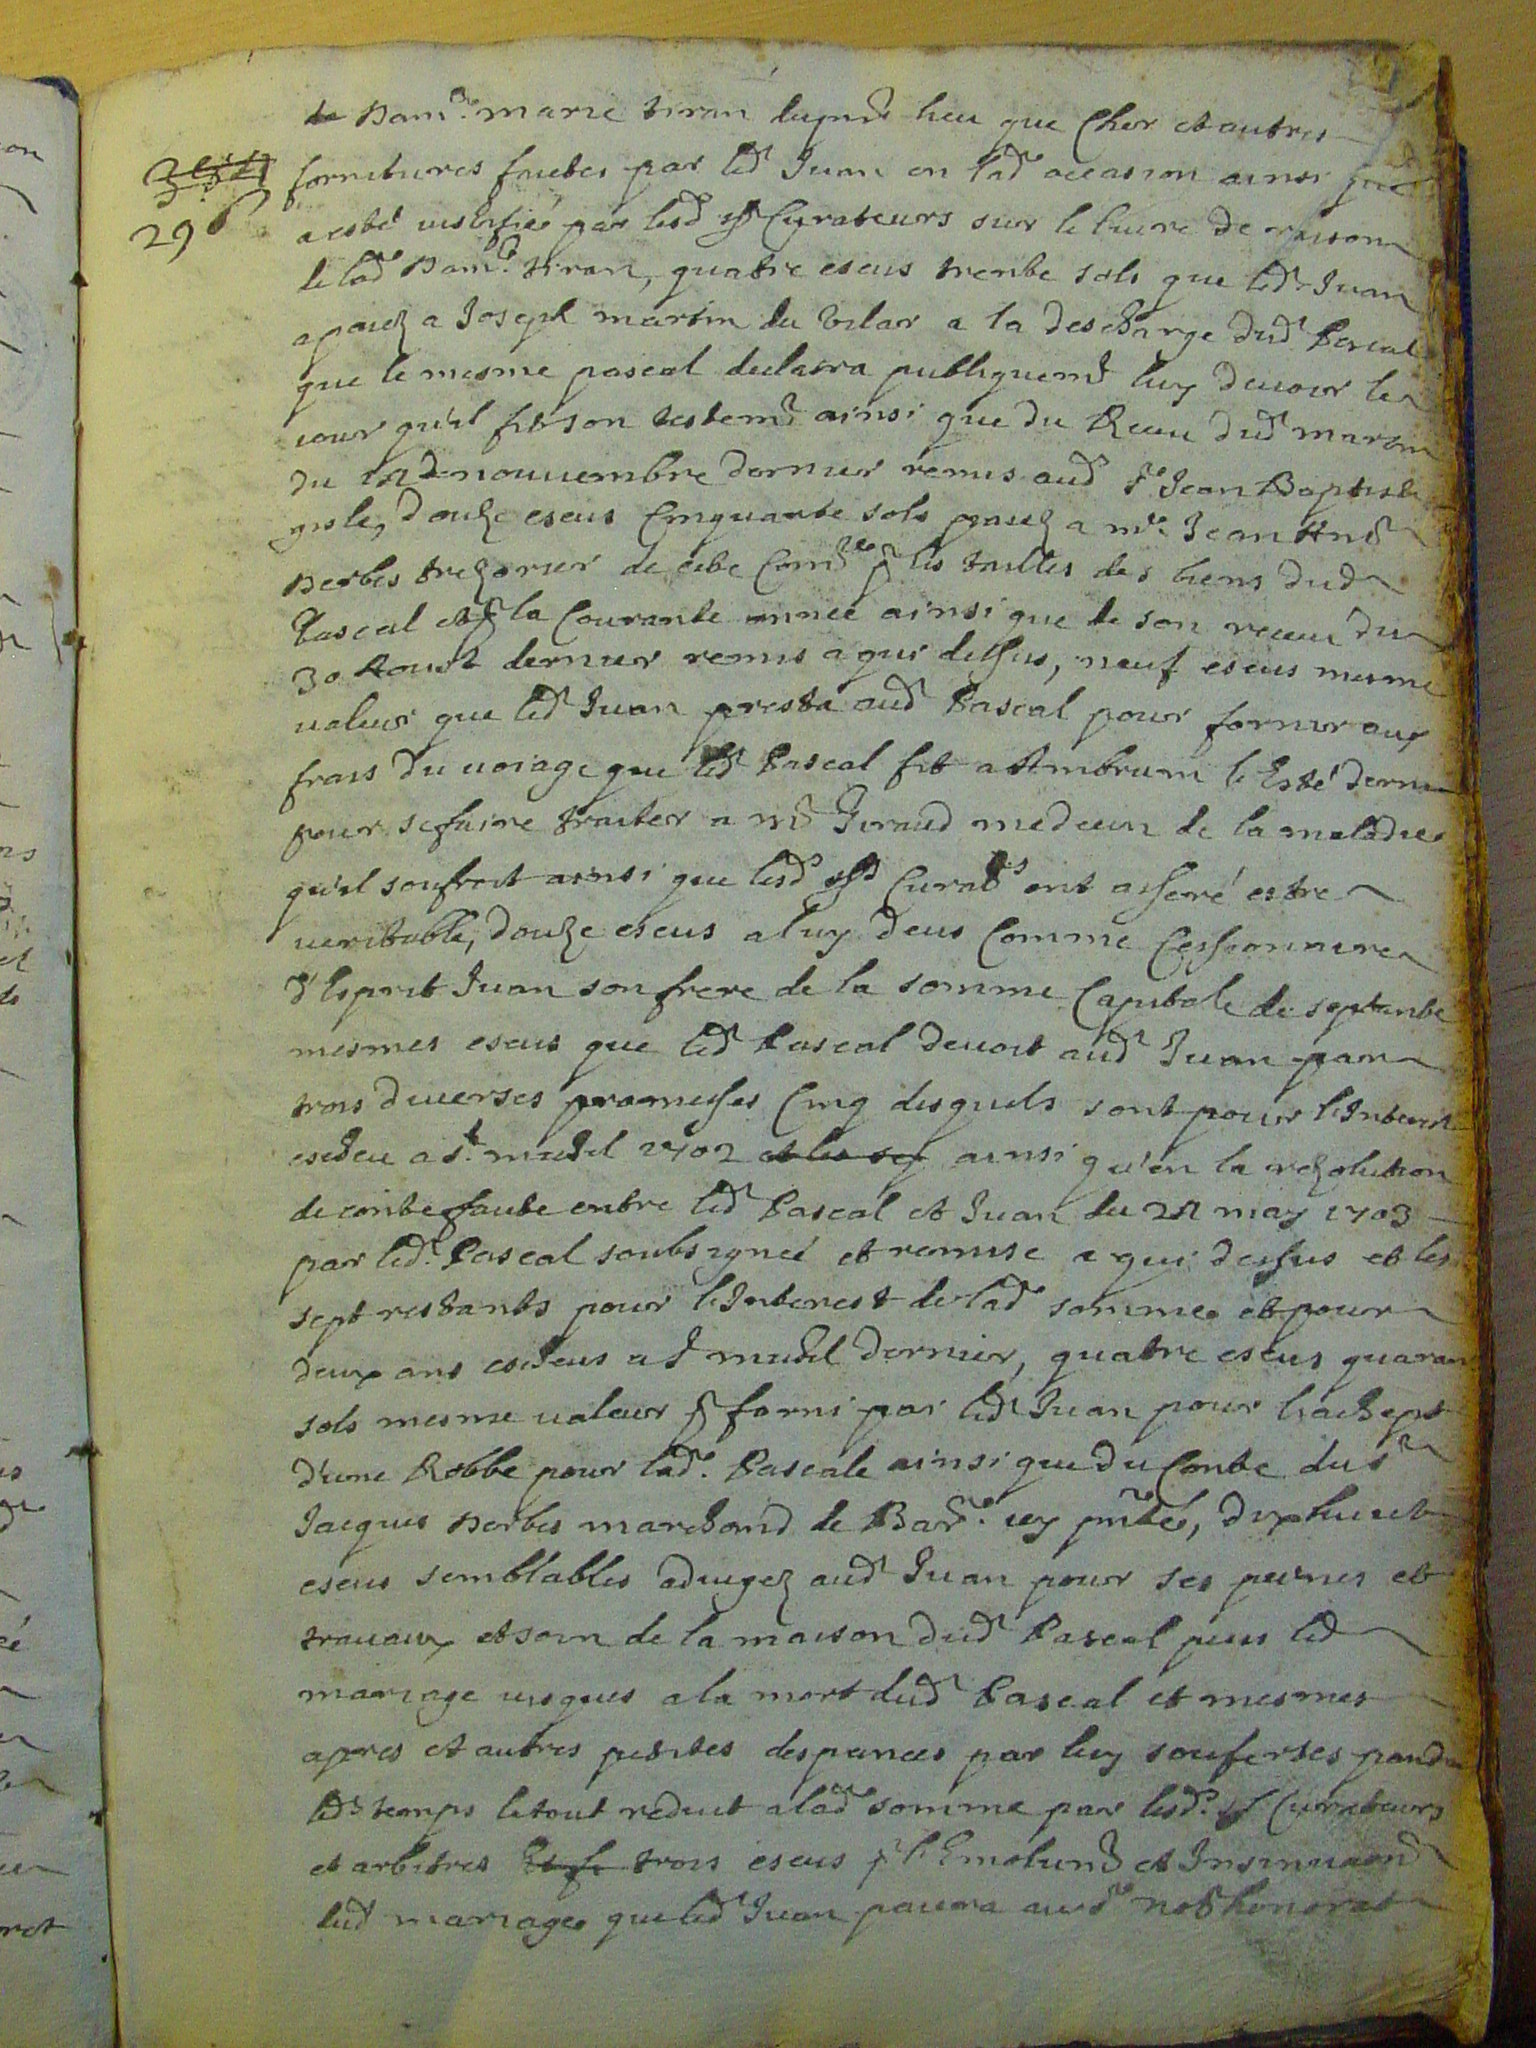 de Dam.e marie tiran du pnt lieu que Cher et autres
296
fornitures faictes par led Juan en lad occasion ainsi que
a esté iustifiée par lesd srs Curateurs sur le liure de raison
de lad Dam.e tiran, quatre escus trente sols que led Juan
a paiez a Joseph martin du vilar a la descharge dud Pascal
que le mesme pascal declaira publiquemt luy deuoir le
iour qu'il fit son testemt ainsi que du Receu dud martin
du de nouuembre dernier remis aud sr Jean Baptiste
gisle, douze escus Cinquante sols paiez a me Jean Ant
Derbes trezorier de cete Comte pr les tailles des biens dud
Pascal et pr la Courante année ainsi que de son receu du
30 Aoust dernier remis a qui dessus, neuf escus mesme
valeur que led Juan presta aud Pascal pour fornir aux
frais du voiage que led Pascal fit a Ambrum l'Esté dernier
pour se faire traiter a mr Giraud medecin de la maladie
qu'il soufroit ainsi que lesd srs Curatrs ont asseré estre
veritable, douze escus a luy deus Comme Cessionnaire
d'Esprit Juan son frere de la somme Capitale de septante
mesmes escus que led Pascal deuoit aud Juan par
trois diuerses promesses Cinq desquels sont pour l'Interest
escheu a st michel 1702 et les sep ainsi qu'en la rezolution
de conte faite entre led Pascal et Juan du may 1703
par led Pascal soubsigneé et remise a qui dessus et les
sept restants pour l'Interest de lad somme et pour
deux ans escheus a st michel dernier, quatre escus quarante
sols mesme valeur pr forni par led Juan pour l'achept
d'une Robbe pour lad. Pascale ainsi que du Conte du sr
Jacques Derbes marchand de Bar.e icy pnté, dixhuict
escus semblables adiugez aud Juan pour ses peines et
trauaux et soin de la maison dud Pascal puis led
mariage iusques a la mort dud Pascal et mesmes
apres et autres petites despances par luy soufertes pandant
led temps le tout reduit a lad somme par lesd. srs Curateurs
et arbitres trois escus pr l'Emolumt et Insinuaon
dud mariage que led Juan paiera aud not honorat